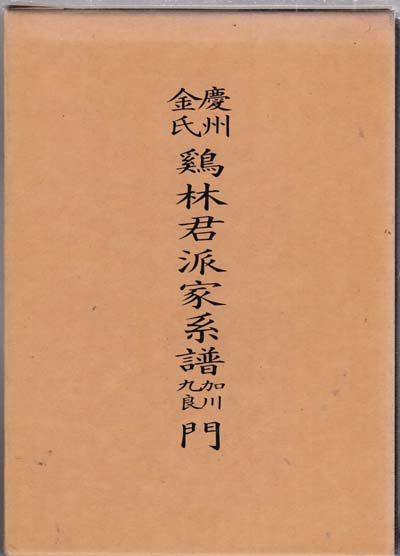 慶州
金氏
鷄林君派家系譜
加川
九良
門